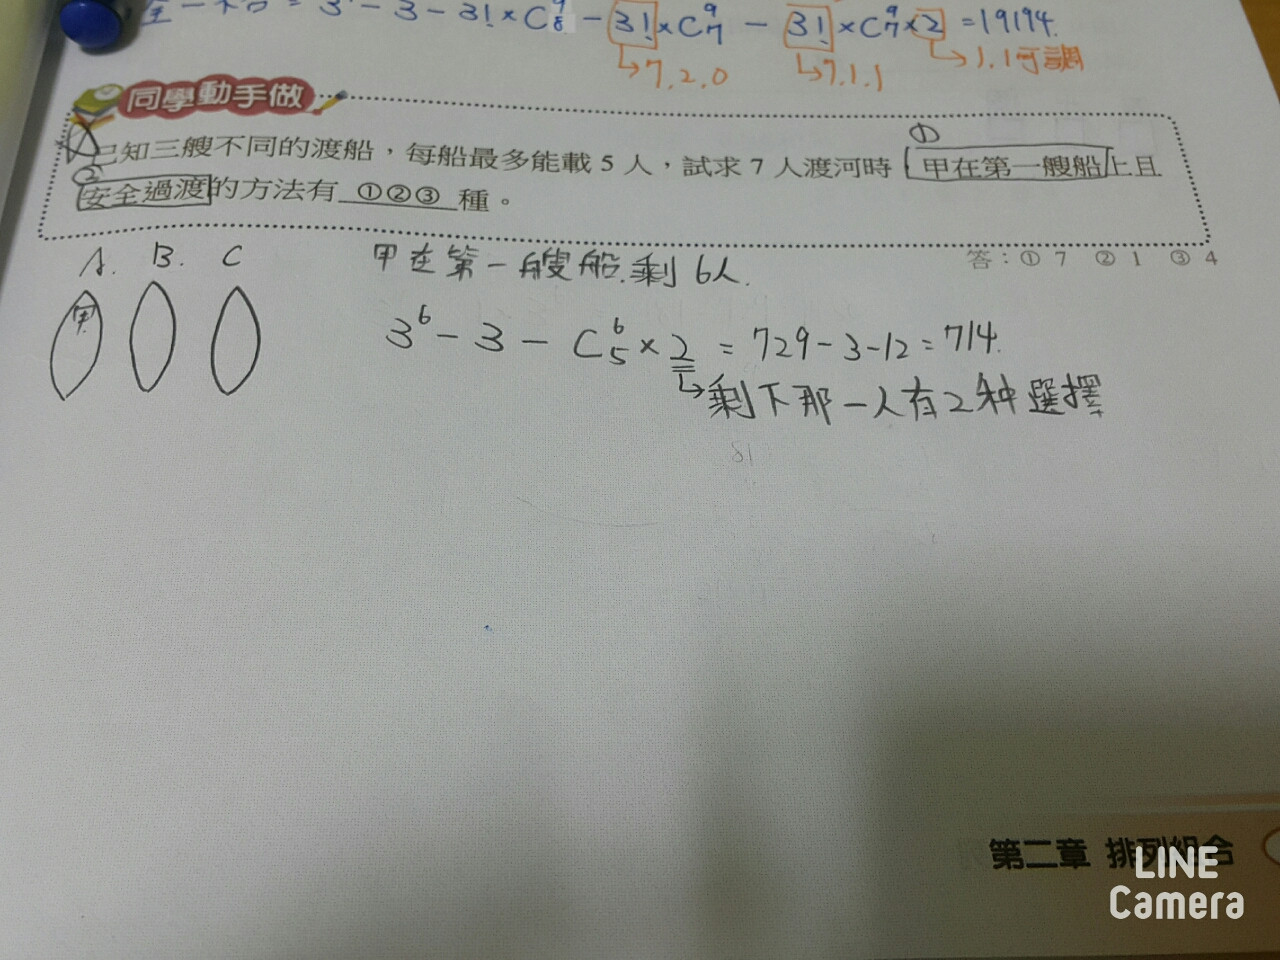 = 3 - 3 - 3! × C⁹₈ - 3! × C⁹₇ - 3! × C⁹₇ × 2 = 19194.
↳7.2.0 ↳7.1.1 ↳1.1可調
同學動手做
①
已知三艘不同的渡船，每船最多能載 5 人，試求 7 人渡河時 甲在第一艘船上且
②
安全過渡的方法有 ①②③ 種。
答：① 7 ② 1 ③ 4
A. B. C
甲在第一艘船.剩6人.
甲
3⁶ - 3 - C⁶₅ × 2 = 729 - 3 - 12 = 714.
↳剩下那一人有2种選擇
第二章 排列組合
LINE
Camera